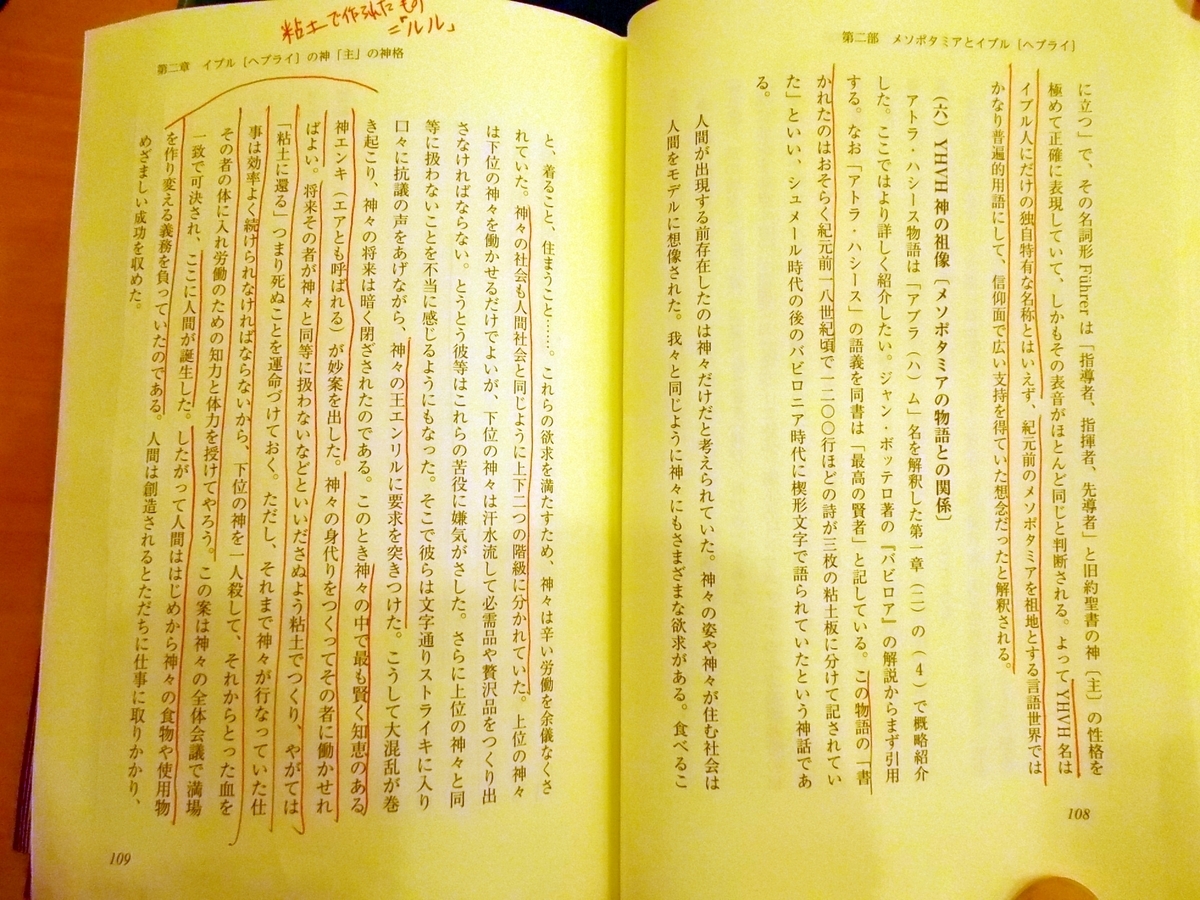 第二部　メソポタミアとイブル〔ヘブライ〕
に立つ」で、その名詞形 Führer は「指導者、指揮者、先導者」と旧約聖書の神〔主〕の性格を
極めて正確に表現していて、しかもその表音がほとんど同じと判断される。よって YHVH 名は
イブル人にだけの独自特有な名称とはいえず、紀元前のメソポタミアを祖地とする言語世界では
かなり普遍的用語にして、信仰面で広い支持を得ていた想念だったと解釈される。
（六）YHVH 神の祖像〔メソポタミアの物語との関係〕
アトラ・ハシース物語は「アブラ（ハ）ム」名を解釈した第一章（二）の（４）で概略紹介
した。ここではより詳しく紹介したい。ジャン・ボッテロ著の『バビロア』の解説からまず引用
する。なお「アトラ・ハシース」の語義を同書は「最高の賢者」と記している。この物語の「書
かれたのはおそらく紀元前一八世紀頃で一二〇〇行ほどの詩が三枚の粘土板に分けて記されてい
た」といい、シュメール時代の後のバビロニア時代に楔形文字で語られていたという神話であ
る。
人間が出現する前存在したのは神々だけだと考えられていた。神々の姿や神々が住む社会は
人間をモデルに想像された。我々と同じように神々にもさまざまな欲求がある。食べるこ
108
粘土で作られたもの
=「ルル」
第二章　イブル〔ヘブライ〕の神「主」の神格
と、着ること、住まうこと……。これらの欲求を満たすため、神々は辛い労働を余儀なくさ
れていた。神々の社会も人間社会と同じように上下二つの階級に分かれていた。上位の神々
は下位の神々を働かせるだけでよいが、下位の神々は汗水流して必需品や贅沢品をつくり出
さなければならない。とうとう彼等はこれらの苦役に嫌気がさした。さらに上位の神々と同
等に扱わないことを不当に感じるようにもなった。そこで彼らは文字通りストライキに入り
口々に抗議の声をあげながら、神々の王エンリルに要求を突きつけた。こうして大混乱が巻
き起こり、神々の将来は暗く閉ざされたのである。このとき神々の中で最も賢く知恵のある
神エンキ（エアとも呼ばれる）が妙案を出した。神々の身代りをつくってその者に働かせれ
ばよい。将来その者が神々と同等に扱わないなどといいださぬよう粘土でつくり、やがては
「粘土に還る」つまり死ぬことを運命づけておく。ただし、それまで神々が行なっていた仕
事は効率よく続けられなければならないから、下位の神を一人殺して、それからとった血を
その者の体に入れ労働のための知力と体力を授けてやろう。この案は神々の全体会議で満場
一致で可決され、ここに人間が誕生した。したがって人間ははじめから神々の食物や使用物
を作り変える義務を負っていたのである。人間は創造されるとただちに仕事に取りかかり、
めざましい成功を収めた。
109